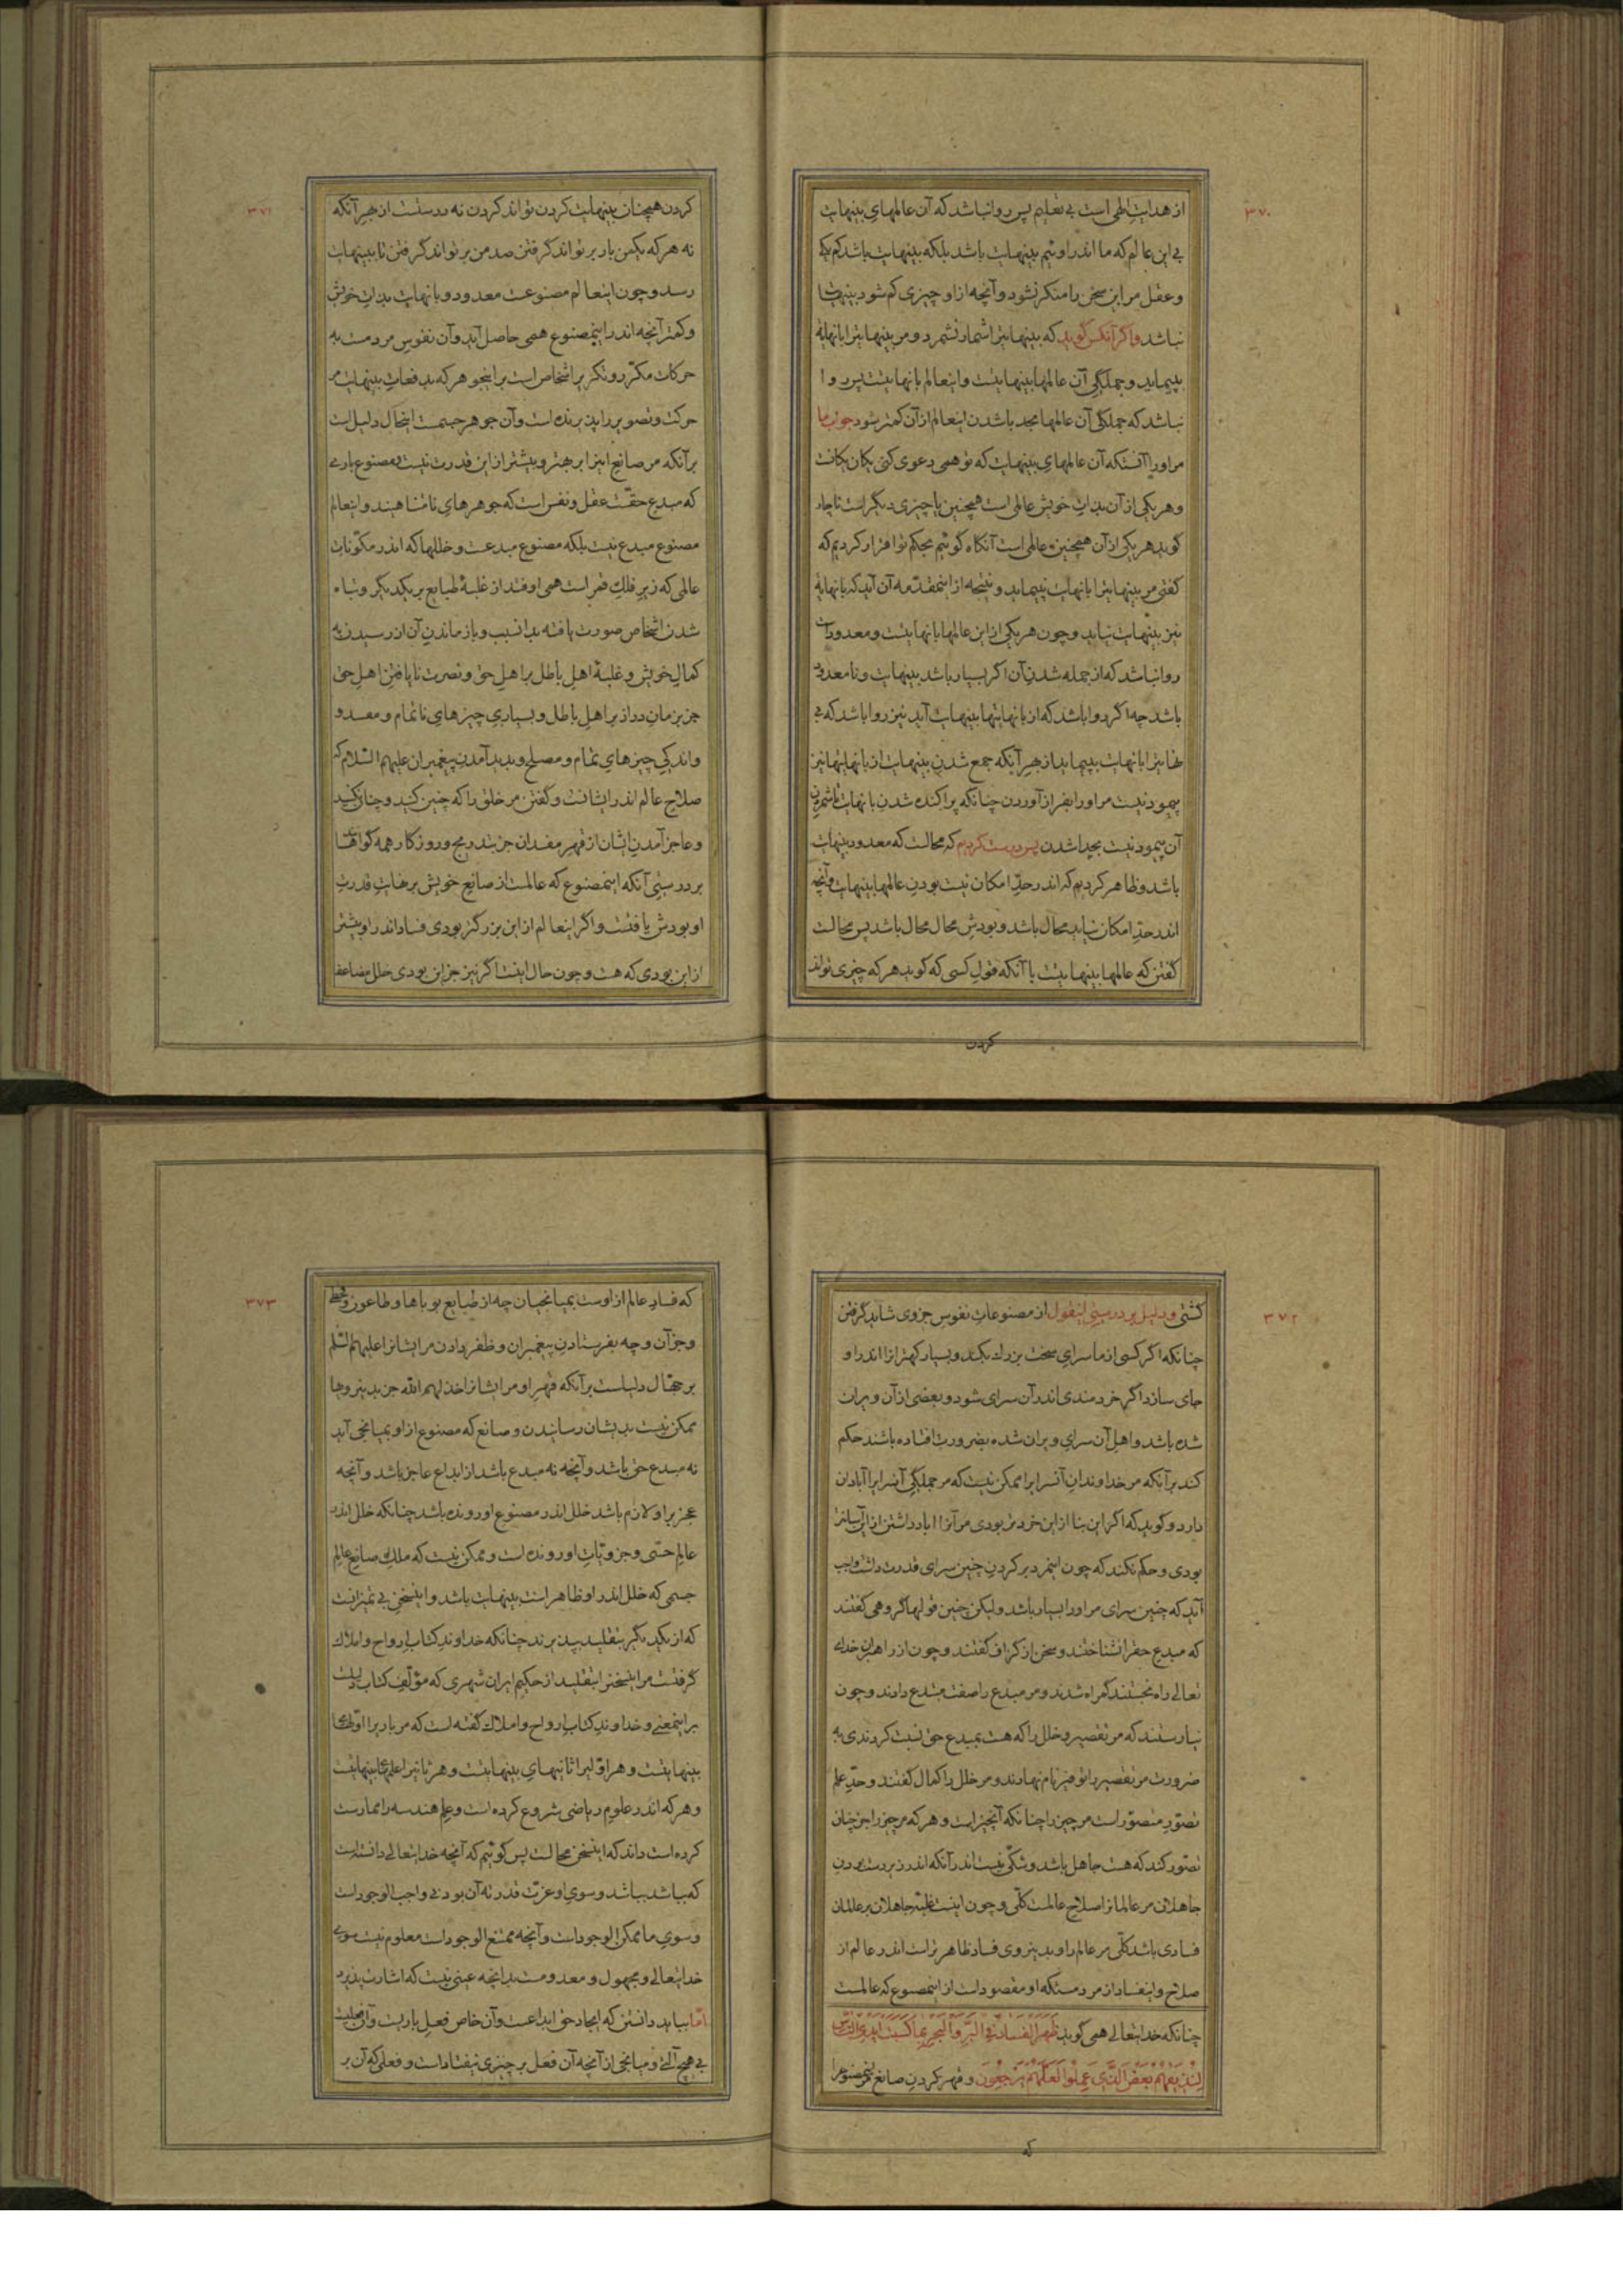 ۳۷۰
از هدایت الهی است بی تعلیم پس روا نباشد که آن عالمهای بینهایت
بی این عالم که ما اندر اوئیم بینهایت باشد بلکه بینهایت باشد کم یکی
وعقل مر این سخن را منکر نشود و آنچه ازاو چیزی کم شود بینهایت
نباشد واگر آنکس گوید که بینهایترا شمار نشمرد و مر بینهایترا بانهایة
نپیماید و جملگی آن عالمها بینهایتست و اینعالم بانهایتست پس روا
نباشد که جملگی آن عالمها بجدا شدن اینعالم ازآن کمتر شود جواب ما
مر اورا آنستکه آن عالمهای بینهایت که تو همی دعوی کنی یکان یکانست
وهر یکی از آن بذات خویش عالمی است همچنین یا چیزی دیگر است ناچار
گوید هر یکی از آن همچنین عالمی است آنگاه گوئیم بحکم تو اقرار کردیم که
گفتی مر بینهایترا بانهایت نپیماید و نتیجه از اینمقدّمه آن آید که بانهایة
نیز بینهایت نیاید و چون هر یکی از این عالمها بانهایتست و معدودات
روا نباشد که از جمله شدن آن اگر بسیار باشد بینهایت و نامعدود
باشد چه اگر روا باشد که از بانهایتها بینهایت آید نیز روا باشد که بی
نهایترا بانهایت بپیماید از بهر آنکه جمع شدن بینهایت از بانهایتها نیز
پیمودنیست مر اورا بفراز آوردن چنانکه پراکنده شدن بانهایت
آن پیمودنیست بجدا شدن پس درست کردیم که محالست که معدود بینهایت
باشد و ظاهر کردیم که اندر حدّ امکان نیست بودن عالمها بینهایت وآنچه
اندر حدّ امکان نیاید محال باشد و بودش محال محال باشد پس محالست
گفتن که عالمها بینهایتست با آنکه قول کسی که گوید هر که چیزی تواند
کردن
۳۷۱
کردن همچنان بینهایت کردن تواند کردن نه درستست از بهر آنکه
نه هر که یکمن بار بر تواند گرفتن صد من بر تواند گرفتن تا ببینهایت
رسد و چون اینعالم مصنوعست معدود و بانهایت بذات خویش
و کمتر آنچه اندر اینمصنوع همی حاصل آید وآن نفوس مردمست به
حرکات مکرّر و تکریر اشخاص است بر اینجوهر که بدفعات بینهایت مر
حرکت و تصویر را پذیرنده است وآن جوهر جسمست اینحال دلیل است
برآنکه مر صانع اینرا بر بهتر و بیشتر از این قدرت نیست ومصنوع باری
که مبدع حقّست عقل و نفس است که جوهرهای نامتناهیند و اینعالم
مصنوع مبدع نیست بلکه مصنوع مبدعست وخللها که اندر مکوّنات
عالمی که زیر فلک قمر است همی اوفتد از غلبهٔ طبایع بر یکدیگر و تباه
شدن اشخاص صورت یافته بدانسبب و باز ماندن آن از رسیدن به
کمال خویش و غلبهٔ اهل باطل بر اهل حق و نصرت نایافتن اهل حق
جز بزمان دراز بر اهل باطل و بسیاری چیزهای ناتمام و مفسد و
واندکی چیزهای تمام و مصلح و پدید آمدن پیغمبران علیهم السلام که
صلاح عالم اندر ایشانست و گفتن مر خلق را که چنین کنید و چنان نکنید
و عاجز آمدن ایشان از قهر مفسدان جز بتدریج و روزگار همه گواهند
بر درستی آنکه اینمصنوع که عالمست از صانع خویش بر غایت قدرت
او بودش یافتست و اگر اینعالم از این بزرگتر بودی فساد اندر او بیشتر
از این بودی که هست و چون حال اینست اگر نیز جز این بودی خلل مضاعف
۳۷۲
گشتی و دلیل بر درستی اینقول از مصنوعات نفوس جزوی شاید گرفتن
چنانکه اگر کسی از ما سرای سخت بزرگ بکند و بسیار کهترانرا اندر او
جای سازد اگر خردمندی اندر آن سرای شود و بعضی ازآن ویران
شده باشد و اهل آن سرای ویران شده بضرورت افتاده باشند حکم
کند برآنکه مر خداوندان آنسرایرا ممکن نیست که مر جملگی آنسرایرا آبادان
دارد و گوید که اگر این بنا از این خردتر بودی مر آنرا آباد داشتن از این آسانتر
بودی و حکم نکند که چون اینمرد بر کردن چنین سرای قدرت داشت واجب
آید که چنین سرای مر اورا بسیار باشد ولیکن چنین قولها گروهی گفتند
که مبدع حقرا نشناختند و سخن از گزاف گفتند و چون از راهبران خدای
تعالی راه نجستند گمراه شدند و مر مبدع را صفت مبتدع دادند و چون
نیارستند که مر تقصیر و خلل را که هست بمبدع حق نسبت کردندی به
ضرورت مر تقصیر را توفیر نام نهادند و مر خلل را کمال گفتند و حدّ علم
تصوّر متصوّر است مر چیز را چنانکه آنچیز است و هر که مر چیز را جز چنان
تصوّر کند که هست جاهل باشد و شکّی نیست اندر آنکه اندر زبردست بودن
جاهلان مر عالمانرا صلاح عالمست کلّی و چون اینست غلبهٔ جاهلان بر عالمان
فسادی باشد کلّی مر عالم را و بدینروی فساد ظاهرتر است اندر عالم از
صلاح و اینفساد از مردمستکه او مقصود است از اینمصنوع که عالمست
چنانکه خدایتعالی همی گوید ظَهَرَ الْفَسَادُ فِي الْبَرِّ وَالْبَحْرِ بِمَا كَسَبَتْ أَيْدِي النَّاسِ
لِيُذِيقَهُمْ بَعْضَ الَّذِي عَمِلُوا لَعَلَّهُمْ يَرْجِعُونَ و قهر کردن صانع مر اینمصنوعرا
که
۳۷۳
که فساد عالم از اوست بمیانجیان چه از طبایع بوباها و طاعون وقحط
وجزآن و چه بفرستادن پیغمبران و ظفر دادن مر ایشانرا علیهم السّلم
بر جهّال دلیلست برآنکه قهر او مر ایشانرا خذلهم الله جز بدینروها
ممکن نیست بدیشان رسانیدن و صانع که مصنوع از او بمیانجی آید
نه مبدع حق باشد و آنچه نه مبدع باشد از ابداع عاجز باشد و آنچه
عجز بر او لازم باشد خلل اندر مصنوع او رونده باشد چنانکه خلل اندر
عالم حسّی و جزویّات او رونده است و ممکن نیست که ملک صانع عالم
جسمی که خلل اندر او ظاهر است بینهایت باشد و اینسخن بی تمیزانست
که از یکدیگر بتقلید پذیرند چنانکه خداوند کتاب ارواح و املاک
گرفتست مر اینسخنرا بتقلید از حکیم ایران شهری که مؤلّف کتاب دلیلست
بر اینمعنی و خداوند کتاب ارواح و املاک گفته است که مر باریرا اوّلهای
بینهایتست و هر اوّلیرا ثانیهای بینهایتست و هر ثانیرا علمهای بینهایتست
وهر که اندر علوم ریاضی شروع کرده است و علم هندسه را ممارست
کرده است داند که اینسخن محالست پس گوئیم که آنچه خدایتعالی دانسته است
که بباشد بباشد و سوی او عزّت قدرته آن بودنی واجب الوجود است
و سوی ما ممکن الوجود است و آنچه ممتنع الوجود است معلوم نیست سوی
خدایتعالی و مجهول و معدومست بدانچه عینی نیست که اشارت پذیرد
امّا بباید دانستن که ایجاد حق ابداعست وآن خاص فعل باریست وآن فعلیست
بی هیچ آلتی و میانجی از آنچه آن فعل بر چیزی نیفتاد است و فعلی که آن بر